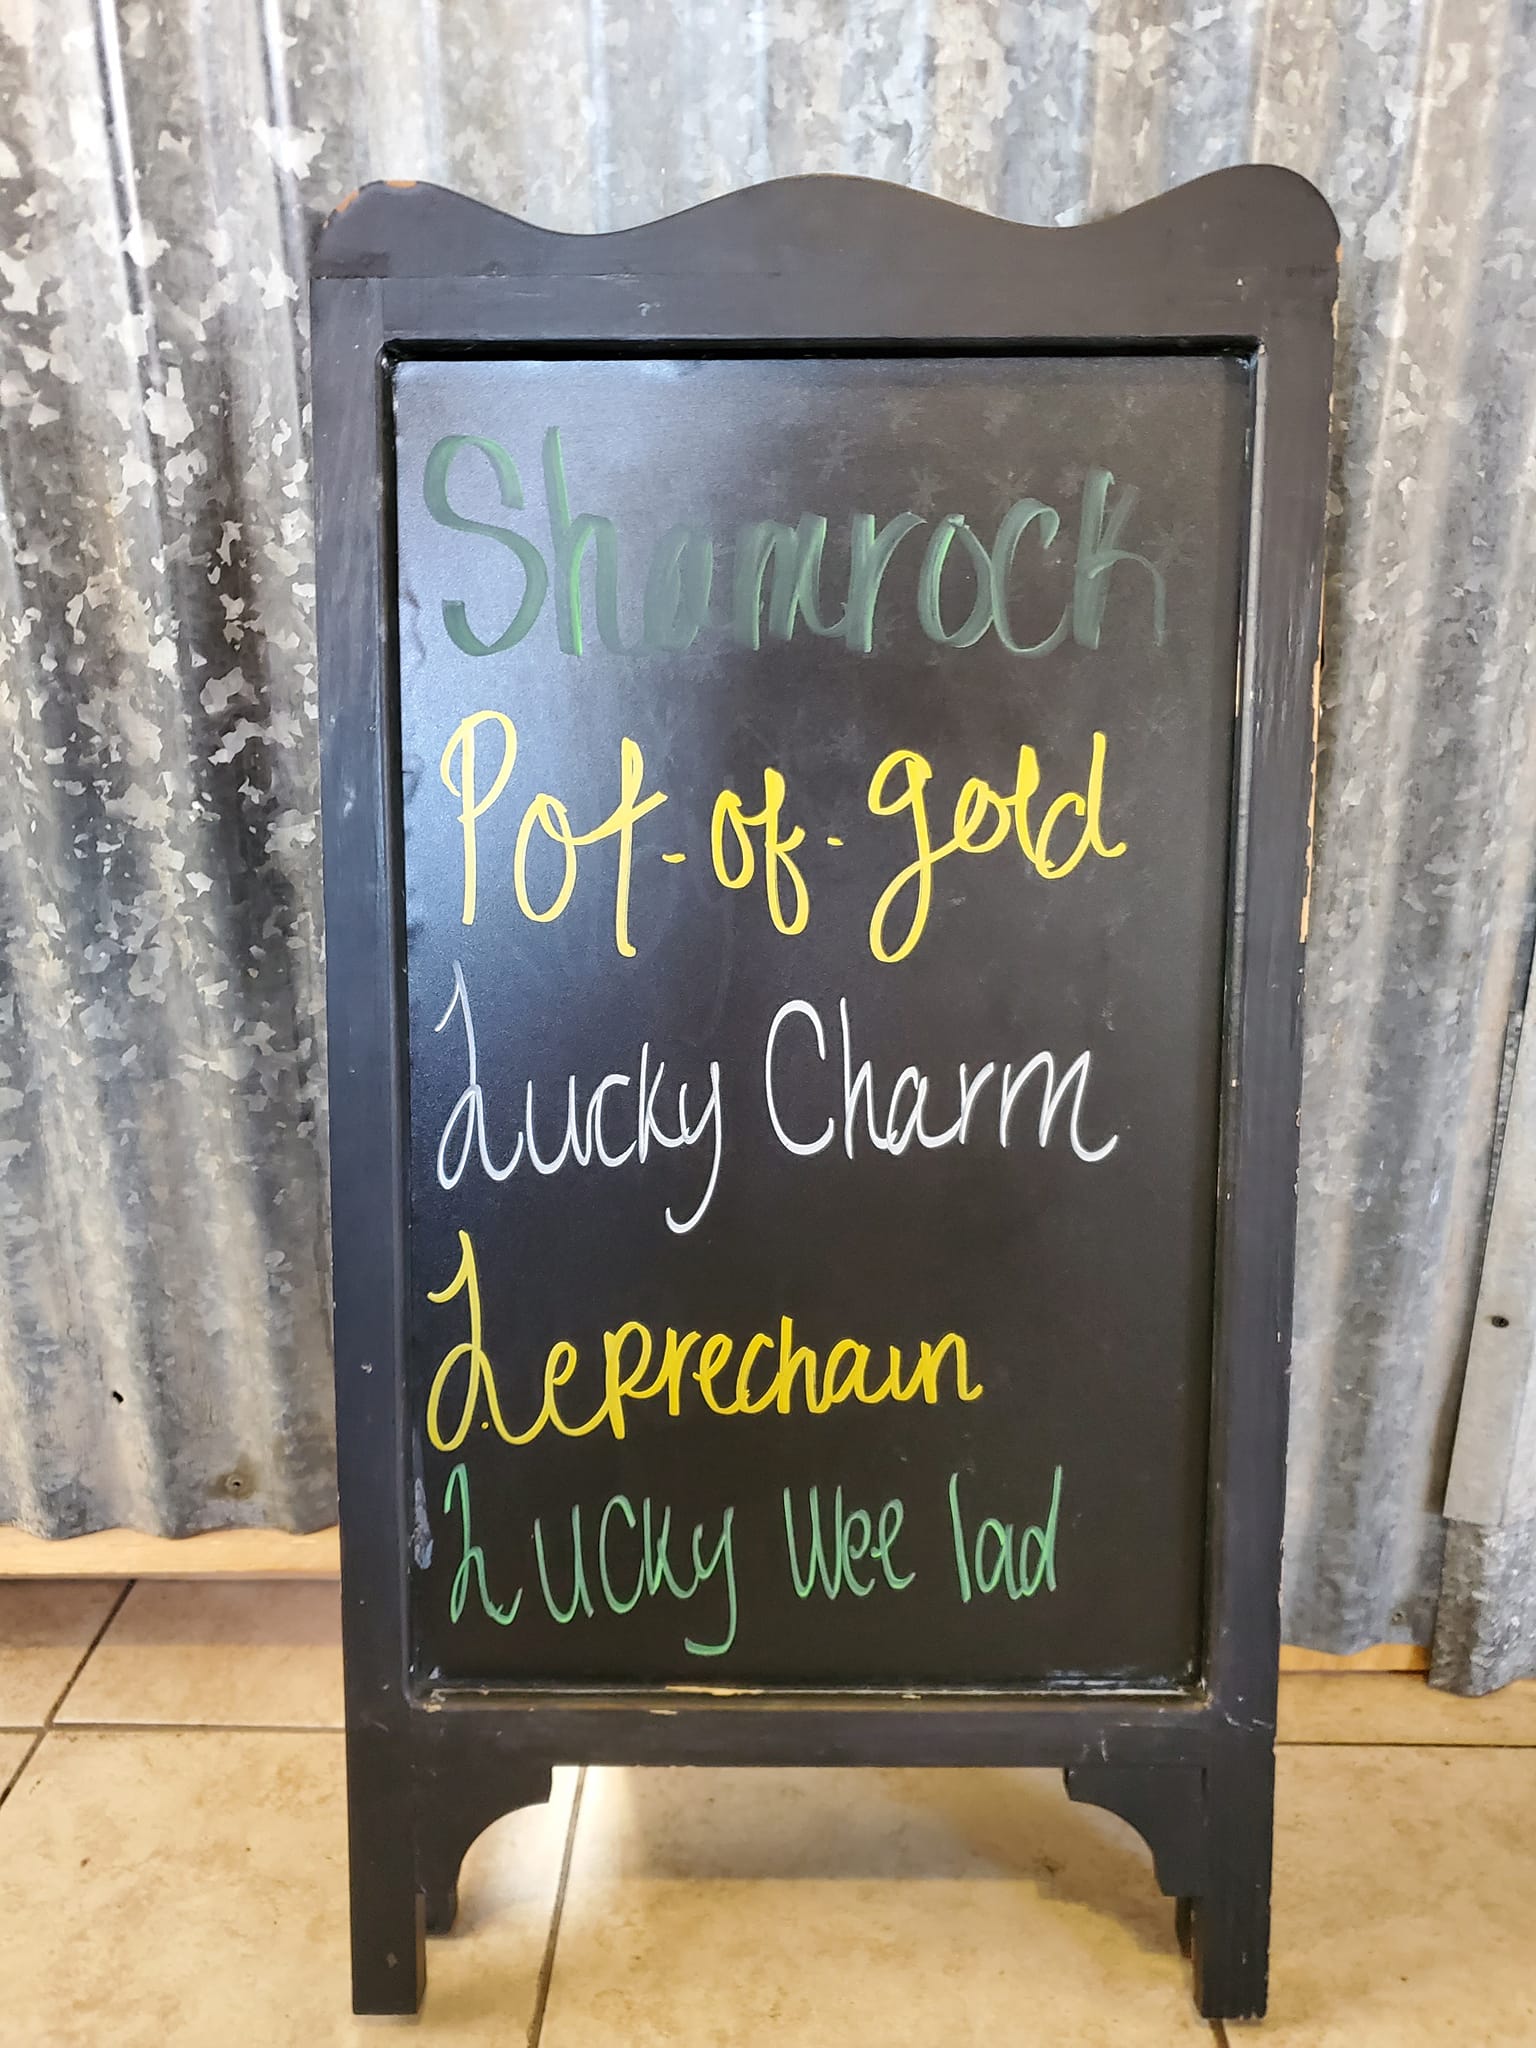 Shamrock
Pot-of-gold
Lucky Charm
Leprechaun
Lucky Wee lad